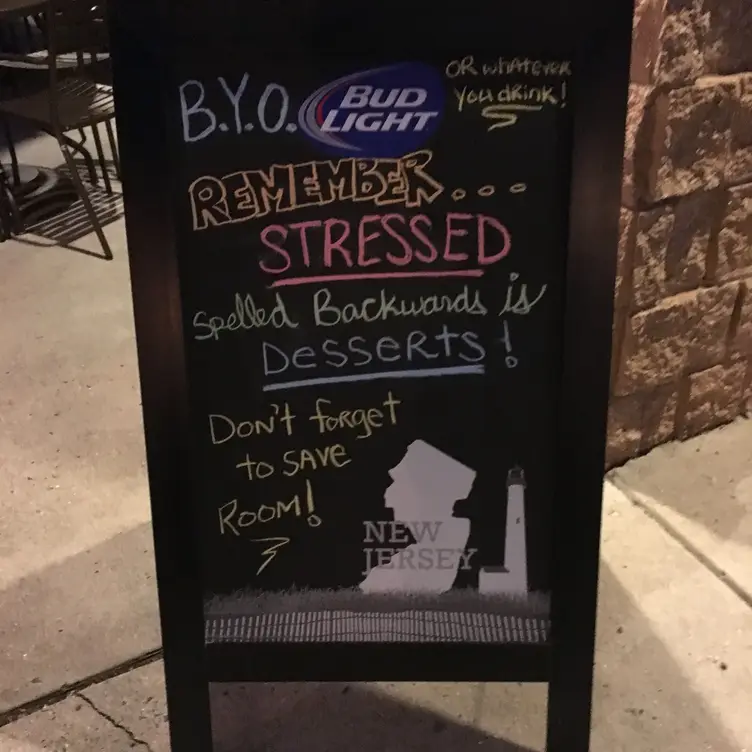 B.Y.O. BUD LIGHT OR whatever you drink!
REMEMBER...
STRESSED
spelled Backwards is
Desserts!
Don't forget
to save
Room!
NEW
JERSEY